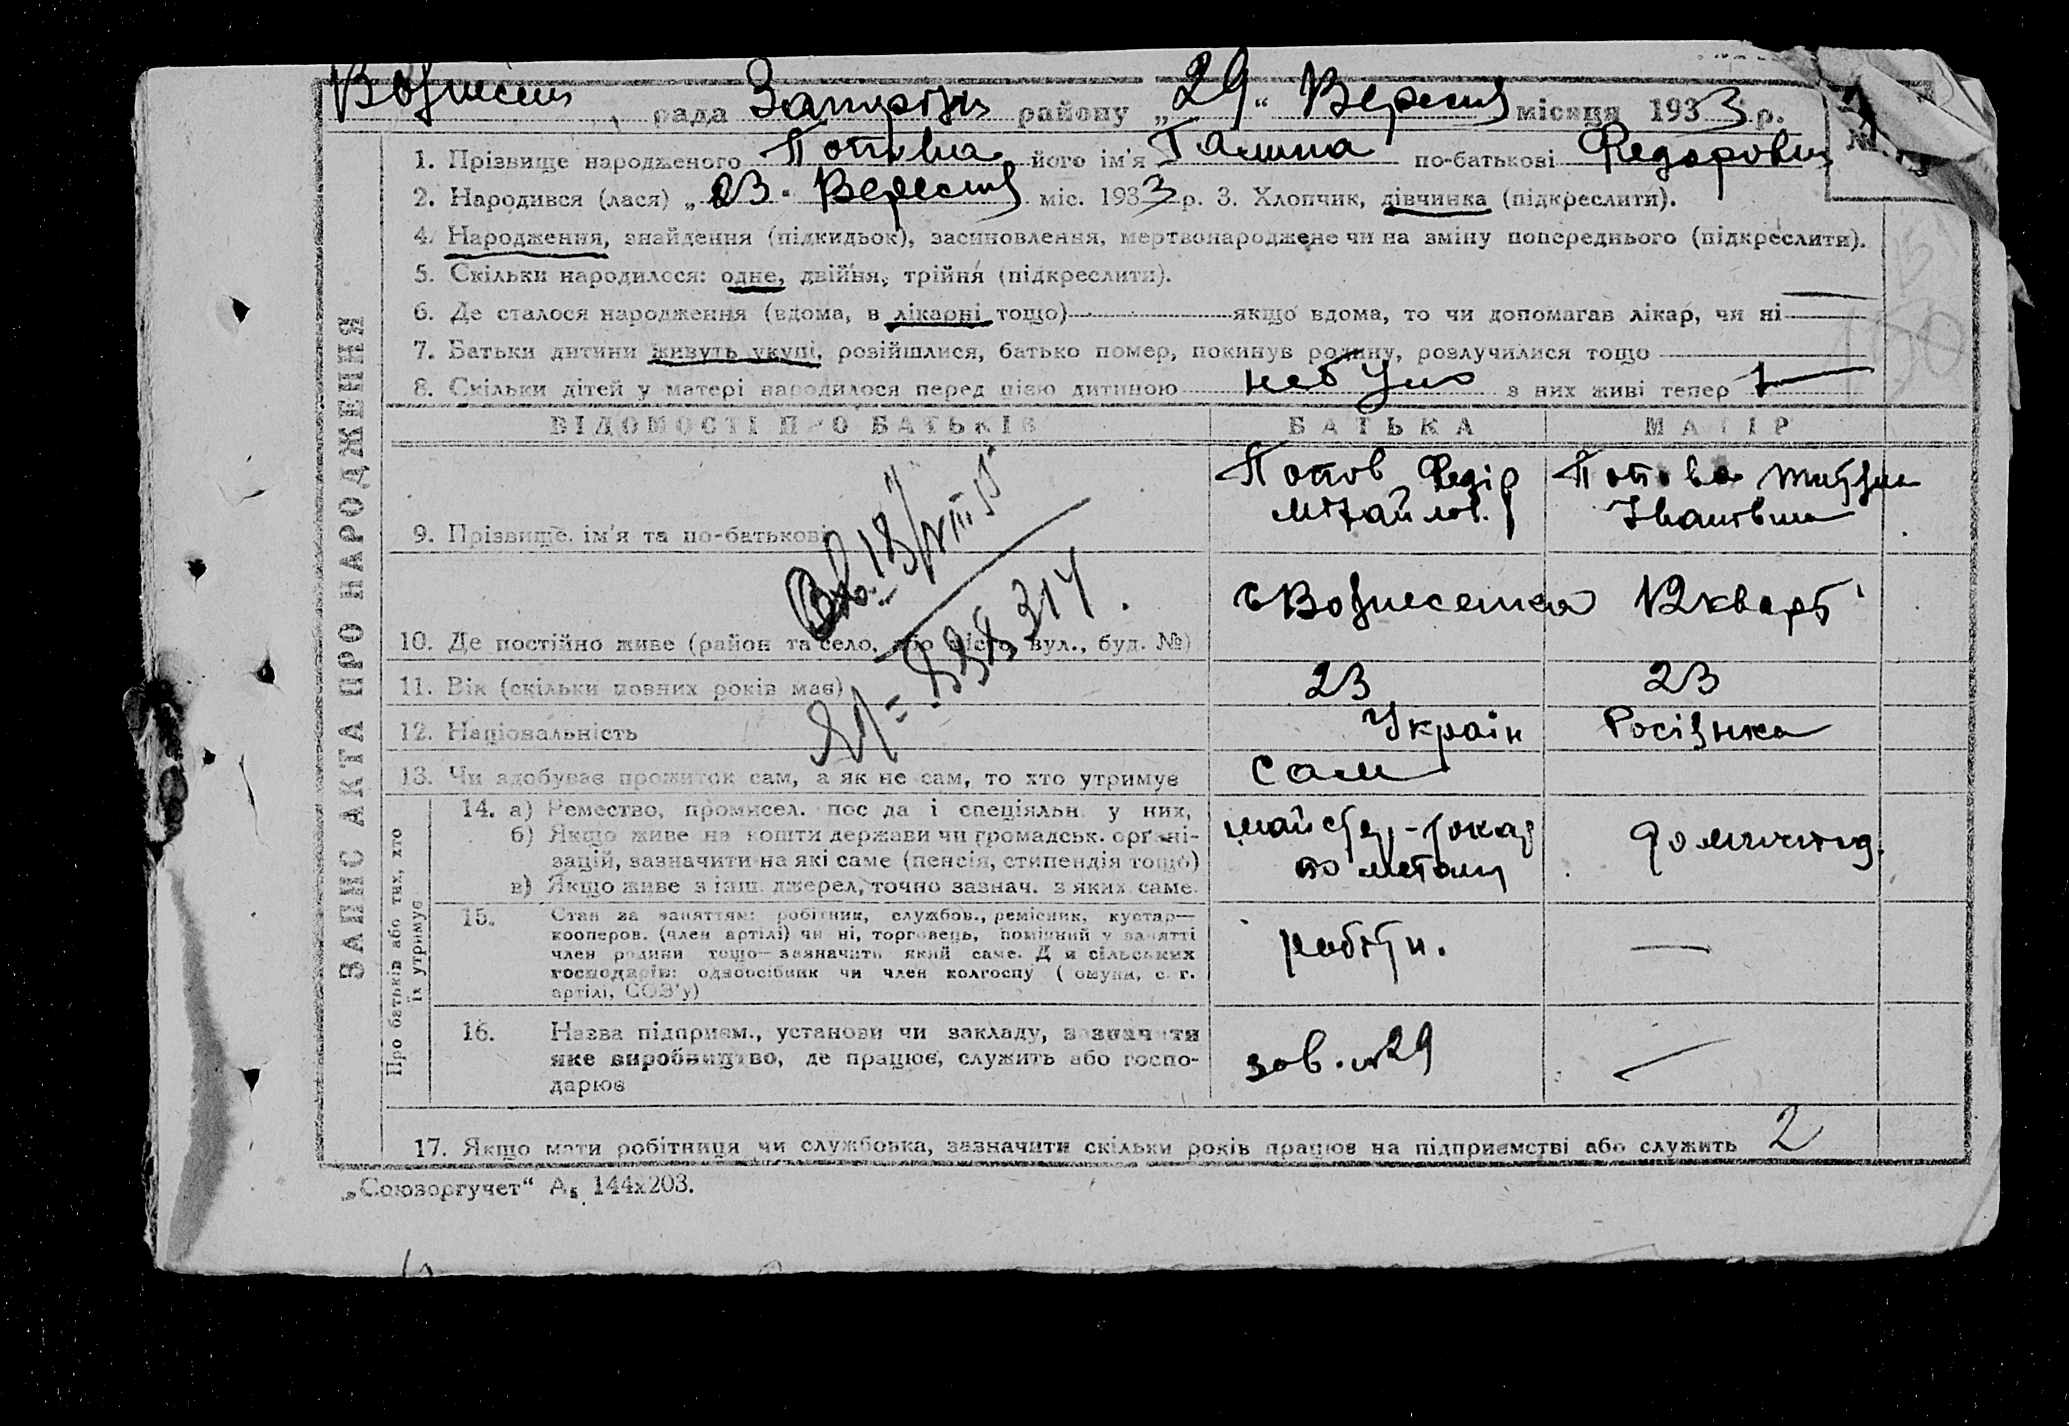 Вознесен. рада Запоріж району „29" Вересня місяця 1933 р.
№
1. Прізвище народженого Попова його ім'я Галина по-батькові Федоровна
2. Народився (лася) „23" Вересня міс. 1933 р. 3. Хлопчик, дівчинка (підкреслити).
4. Народження, знайдення (підкидьок), засиновлення, мертвонароджене чи на зміну попереднього (підкреслити).
5. Скільки народилося: одне, двійня, трійня (підкреслити).
6. Де сталося народження (вдома, в лікарні тощо) якщо вдома, то чи допомагав лікар, чи ні
7. Батьки дитини живуть укупі, розійшлися, батько помер, покинув родину, розлучилися тощо
8. Скільки дітей у матері народилося перед цією дитиною не було з них живі тепер
ЗАПИС АКТА ПРО НАРОДЖЕННЯ
ВІДОМОСТІ ПРО БАТЬКІВ БАТЬКА МАТІР
9. Прізвище, ім'я та по-батькові Попов Федір Попова
Міхайлов. Івановна
10. Де постійно живе (район та село, або місто, вул., буд. №) с Вознесенка 12 кварт
11. Вік (скільки повних років має) 23 23
12. Національність Україн Росіянка
13. Чи здобуває прожиток сам, а як не сам, то хто утримує сам
Про батьків або тих, хто
їх утримує
14. а) Ремество, промисел, посада і спеціяльн. у них,
б) Якщо живе на кошти держави чи громадськ. органі-
зацій, зазначити на які саме (пенсія, стипендія тощо)
в) Якщо живе з інш. джерел, точно зазнач. з яких саме.
майстер-токар
по метали
15. Стан за заняттям: робітник, службов., ремісник, кустар—
кооперов. (член артілі) чи ні, торговець, помічний у занятті
член родини тощо—зазначить який саме. Для сільських
господарів: одноосібник чи член колгоспу (омуни, с. г.
артілі, СОЗ'у)
робітн. —
16. Назва підприєм., установи чи закладу, зазначити
яке виробництво, де працює, служить або госпо-
дарює
зав. №29 —
17. Якщо мати робітниця чи службовка, зазначити скільки років працює на підприємстві або служить 2
„Союзоргучет" А₅ 144х203.